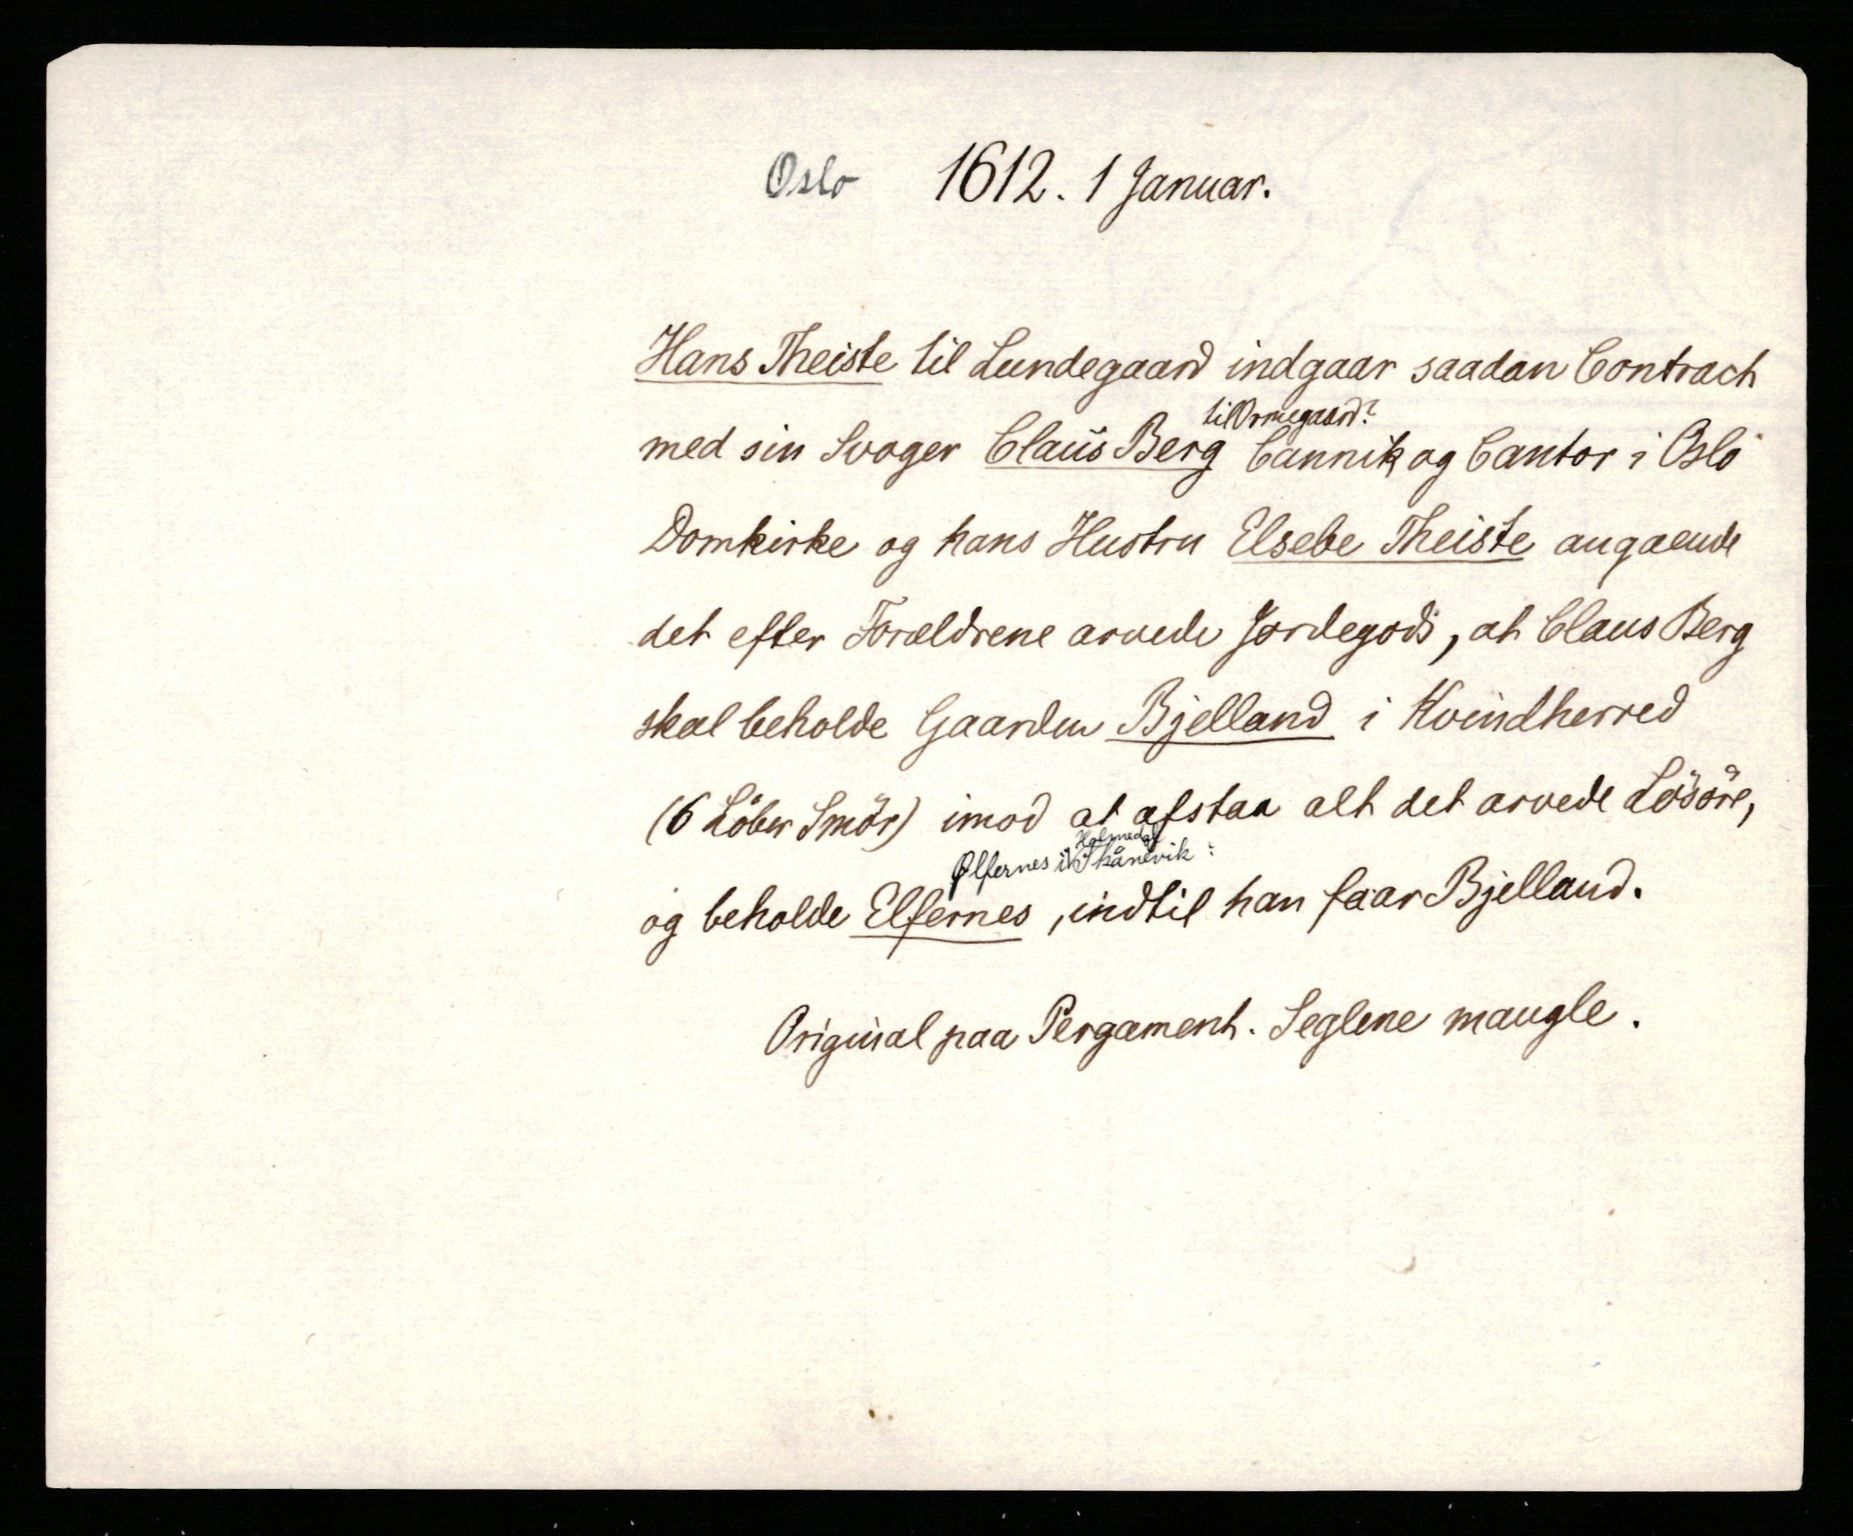 Oslo 1612. 1 Januar.
Hans Theiste til Lundegaard indgaar saadan Contract
til Ormegaard?
med sin Svoger Claus Berg Cannik og Cantor i Oslo
Domkirke og hans Hustru Elsebe Theiste angaende
det efter Forældrene arvede Jordegods, at Claus Berg
skal beholde Gaarden Bjelland i Kvindherred
(6 Löber Smör) imod at afstaa alt det arvede Lösöre,
Holmedal
Ølfernes i Skånevik:
og beholde Elfernes, indtil han faar Bjelland.
Original paa Pergament. Seglene mangle.